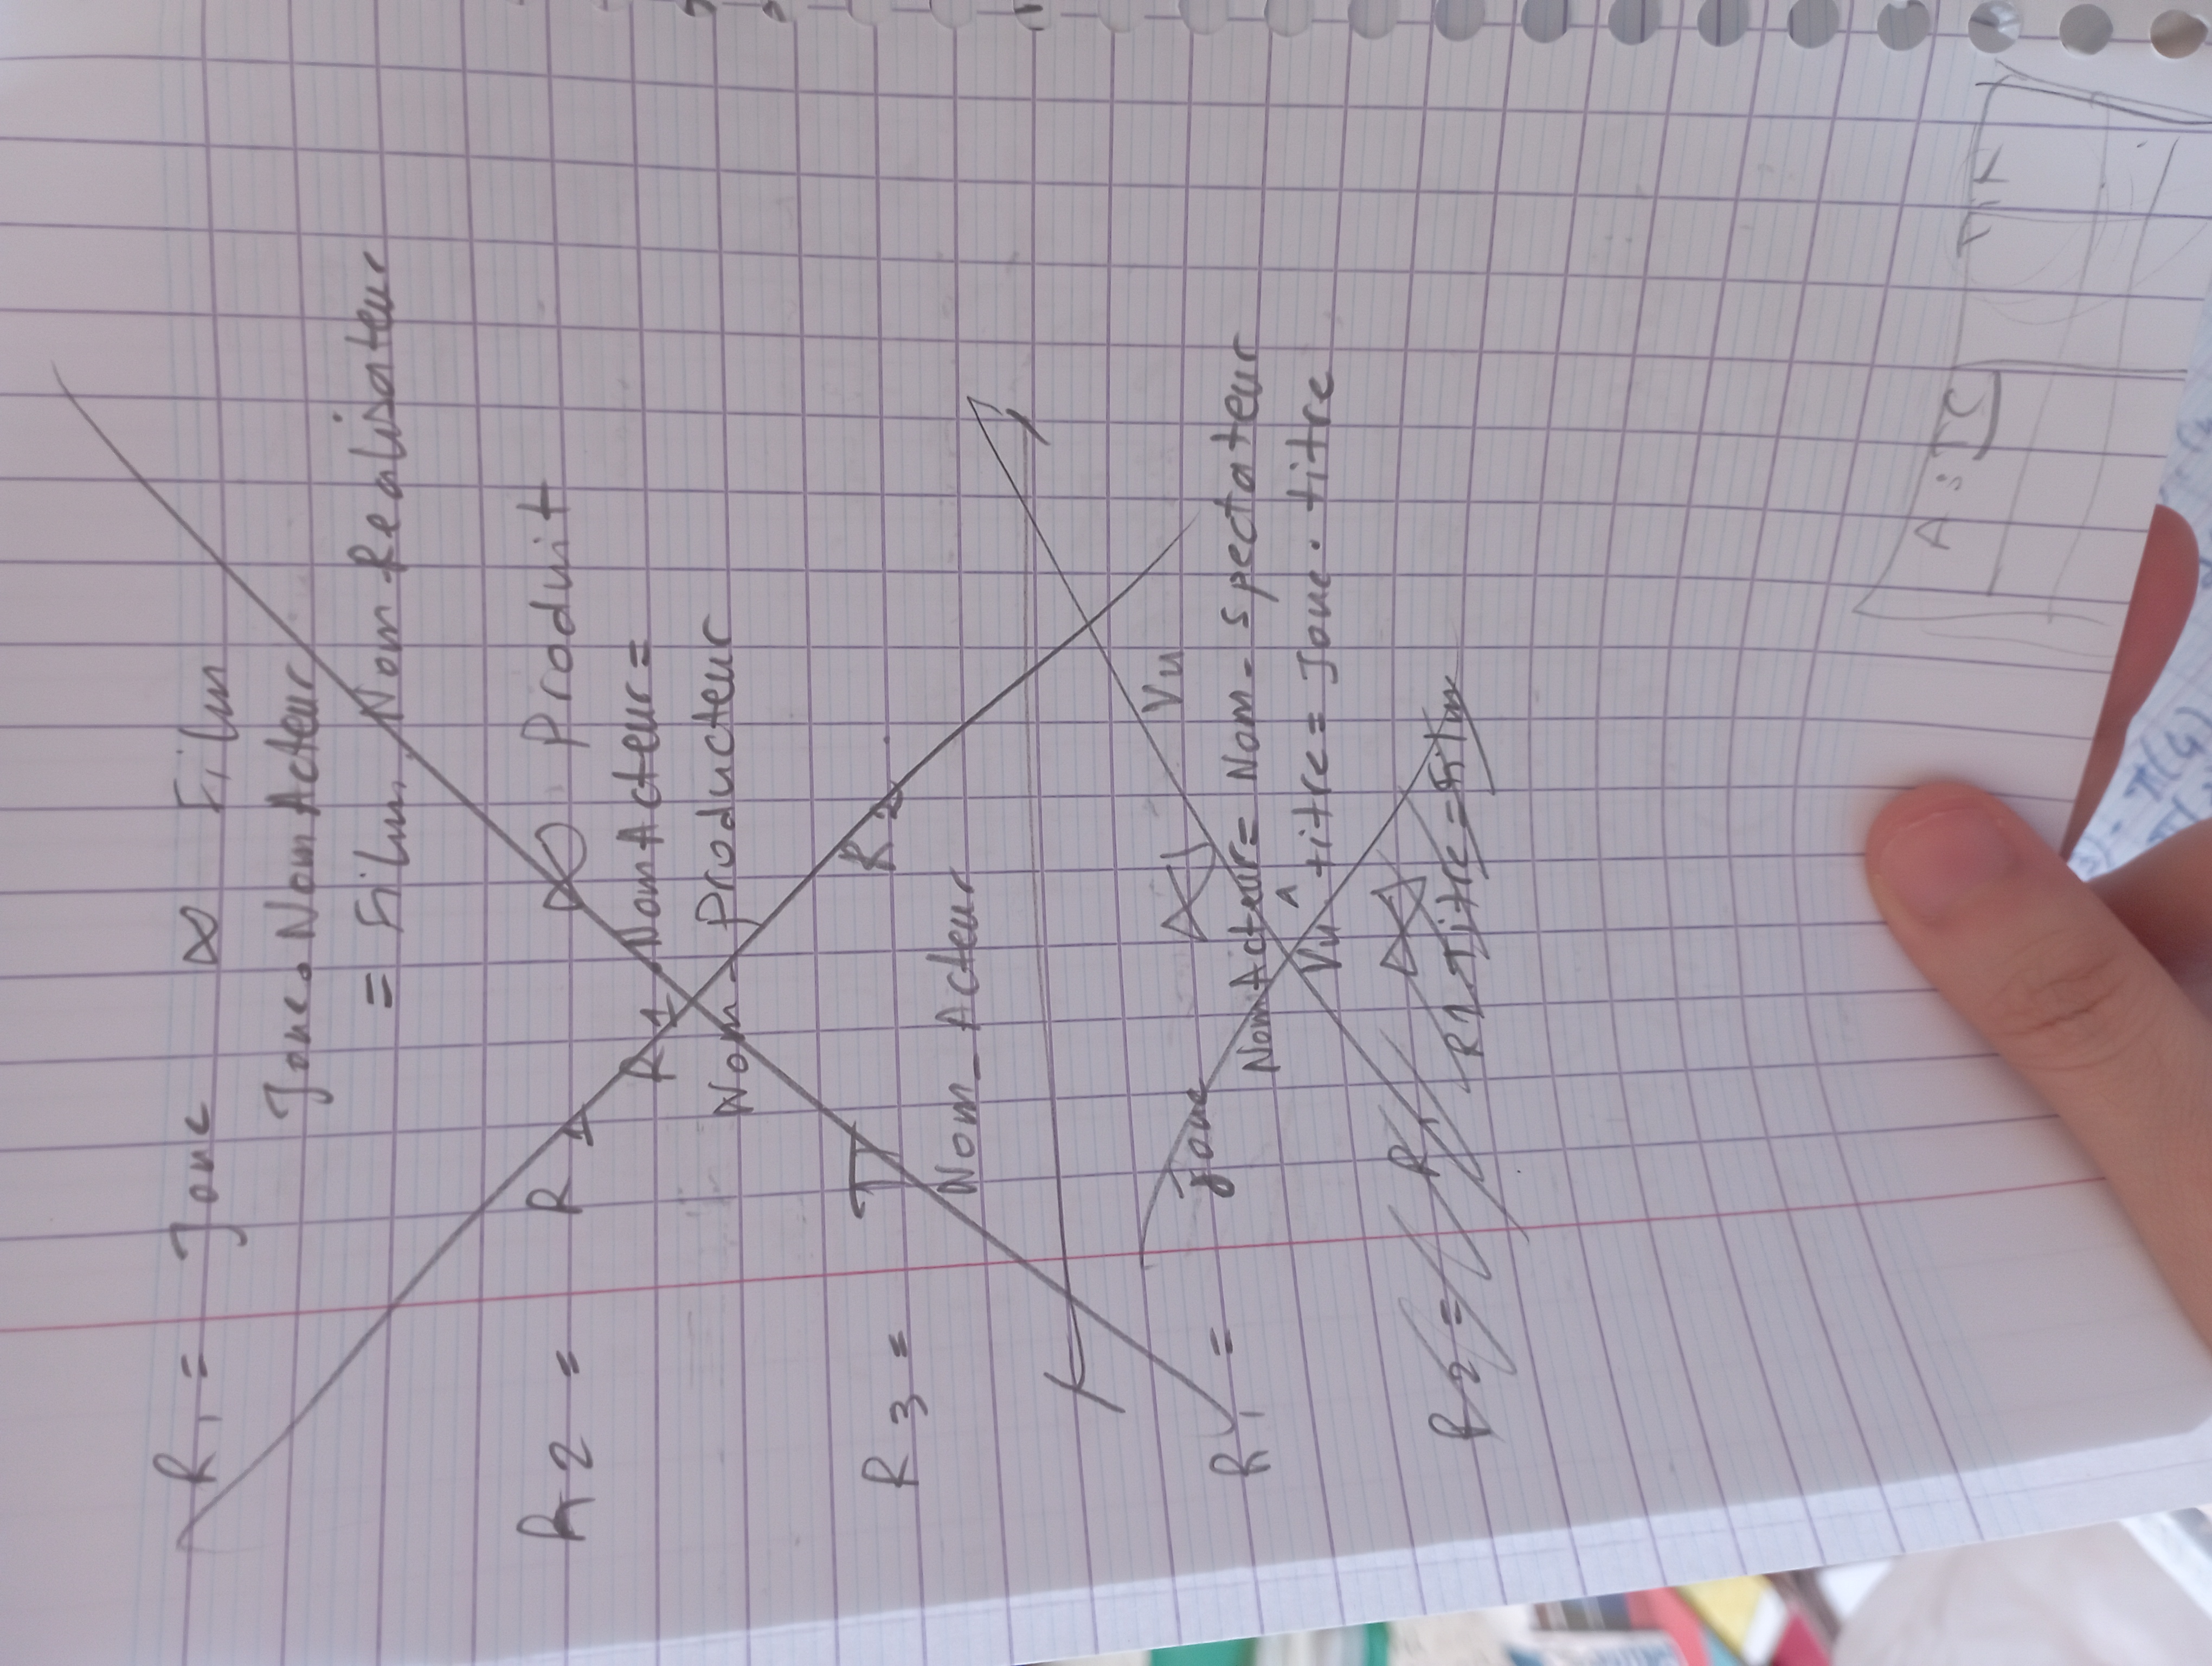 R1 = Joue ∞ Film
Joue.NomActeur
= Film.NomRealisateur
R2 = R1 ⋈ Produit
R1.NomActeur =
Nom-Producteur
R3 = π R2
Nom_Acteur
R1 = Joue ⋈ Vu
NomActeur = Nom-spectateur
^
Vu.titre = Joue.titre
R2 = R1 ⋈
R1.Titre = Film
π(